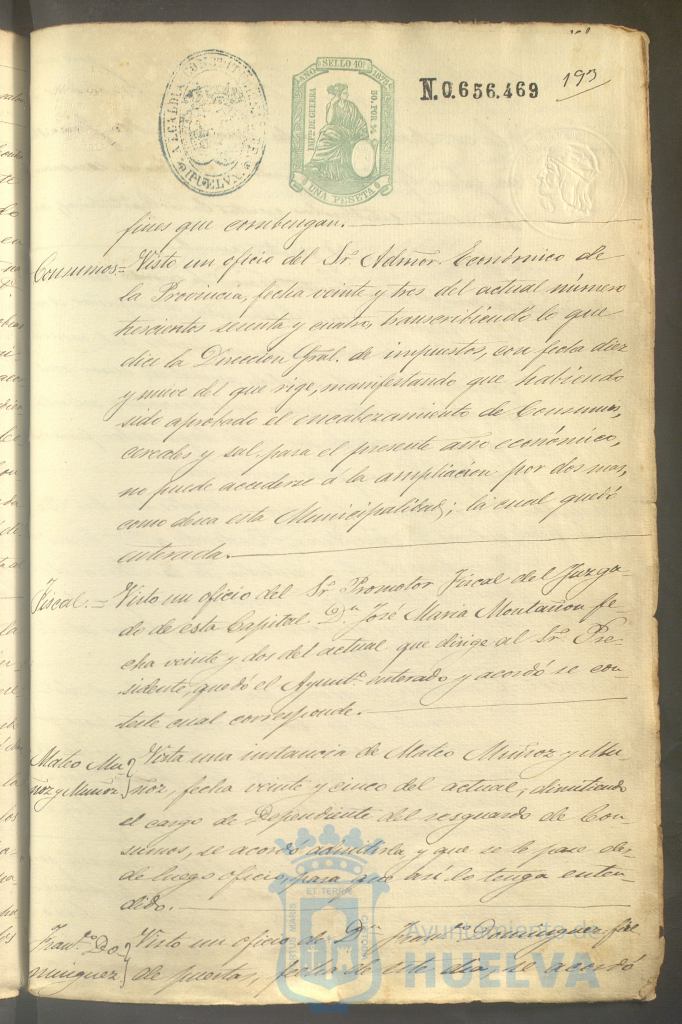 193
N.0.656.469
ALCALDIA CONSTITUCIONAL DE HUELVA
AÑO SELLO 10º
IMPTO DE GUERRA
50. POR %
UNA PESETA
fines que combengan.
Consumos = Visto un oficio del Sr. Admor. Económico de
la Provincia, fecha veinte y tres del actual número
trescientos sesenta y cuatro, transcribiendo lo que
dice la Direccion Gral. de impuestos, con fecha diez
y nueve del que rige, manifestando que habiendo
sido aprobado el encabezamiento de Consumos,
cereales y sal para el presente año económico,
no puede accederse á la ampliacion por dos mas,
como desea esta Municipalidad; la cual quedó
enterada.
Fiscal. = Visto un oficio del Sr. Promotor Fiscal del Juzga-
do de esta Capital Dn. José Maria Montañon fe-
cha veinte y dos del actual que dirige al Sr. Pre-
sidente, quedó el Ayuntº. enterado y acordó se con-
teste cual corresponde.
Mateo Mu- Vista una instancia de Mateo Muñoz y Mu-
ñoz y Muñoz ñoz, fecha veinte y cinco del actual, dimitiendo
el cargo de Dependiente del resguardo de Con-
sumos, se acordó admitirla, y que se le pase des-
de luego oficio, para que asi lo tenga enten-
dido.
Franco. Do- Visto un oficio de D. Franco. Dominguez, fiel
minguez de puertas, fecha de este dia, se acordó
ET TERRAE
PORTUS MARIS
CUSTODIA
Ayuntamiento de
HUELVA